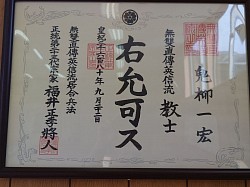 乾柳一宏
無雙直傳英信流
教士
右允可ス
皇紀二千六百八十年九月二十二日
無雙直傳英信流居合兵法
正統第二十三代宗家
福井正孝將人